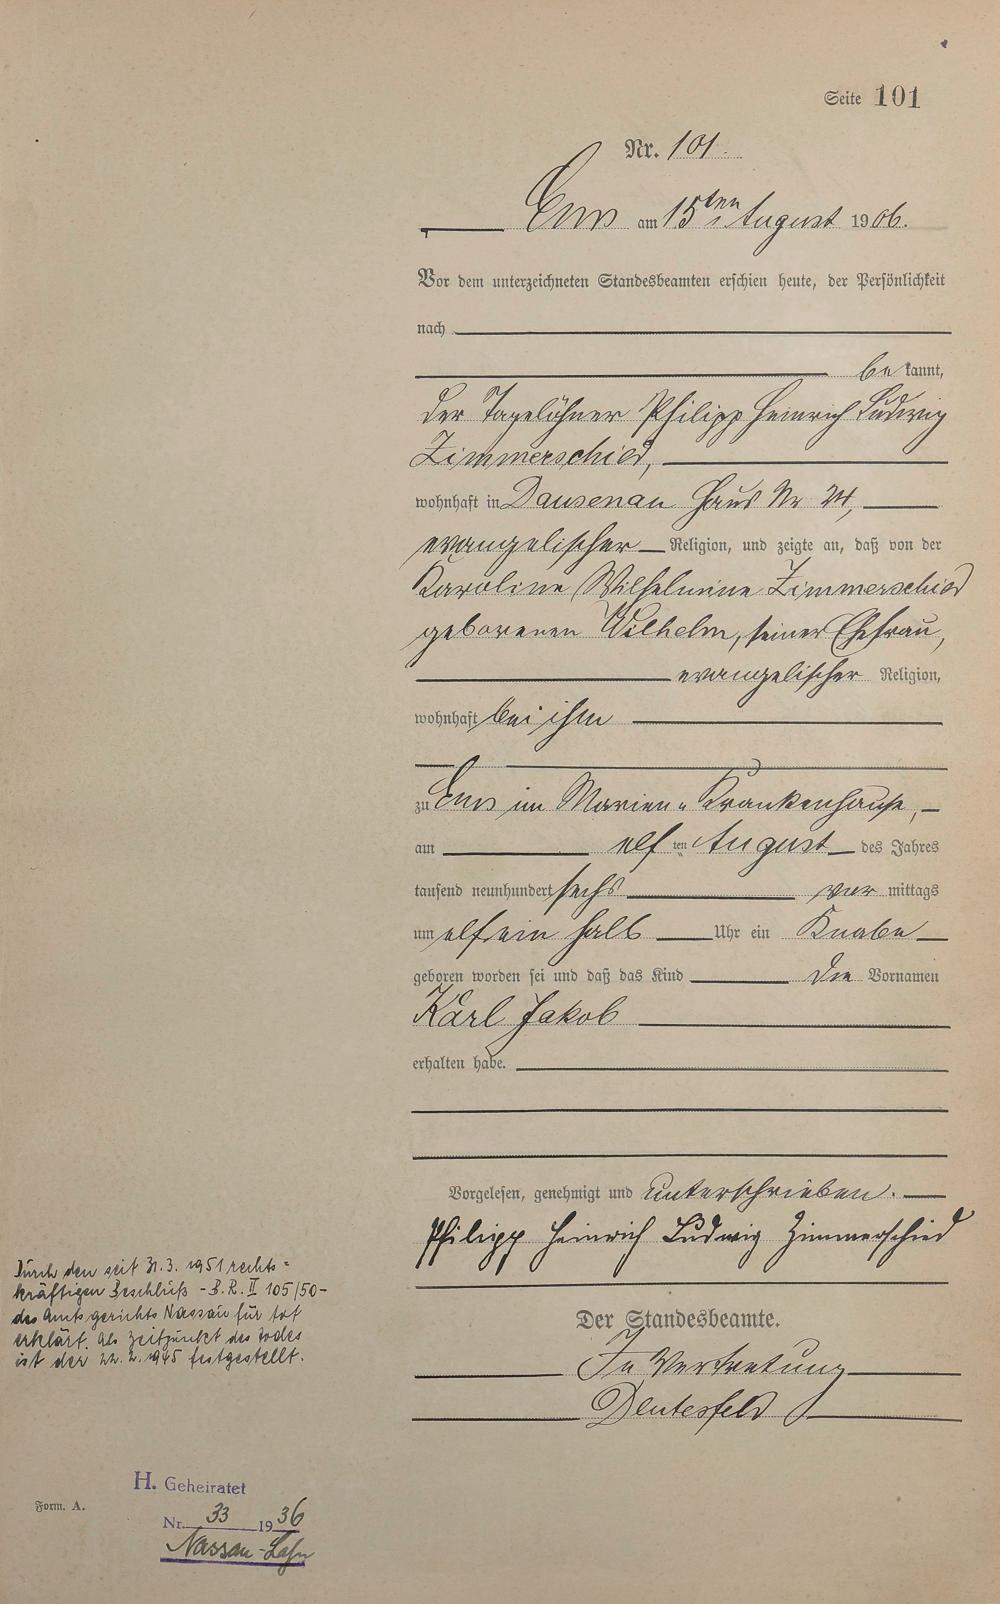 Seite 101
Nr. 101.
Ems am 15ten August 1906.
Vor dem unterzeichneten Standesbeamten erschien heute, der Persönlichkeit
nach
be kannt,
der Tagelöhner Philipp Heinrich Ludwig
Zimmerschied,
wohnhaft in Dausenau Haus Nr 24,
evangelischer Religion, und zeigte an, daß von der
Karoline Wilhelmine Zimmerschied
geborenen Wilhelm, seiner Ehefrau,
evangelischer Religion,
wohnhaft bei ihm
zu Ems im Marien-Krankenhause,
am elf ten August des Jahres
tausend neunhundert sechs vor mittags
um elfeinhalb Uhr ein Knabe
geboren worden sei und daß das Kind die Vornamen
Karl Jakob
erhalten habe.
Vorgelesen, genehmigt und unterschrieben.
Philipp Heinrich Ludwig Zimmerschied
Der Standesbeamte.
In Vertretung
Durch den seit 31.3.1951 rechts=
kräftigen Beschluß - 3.R. II 105/50 -
des Amtsgerichts Nassau für tot
erklärt. Als Zeitpunkt des Todes
ist der 22.2.1945 festgestellt.
H. Geheiratet
Nr. 33 1936
Nassau-Lahn
Form. A.